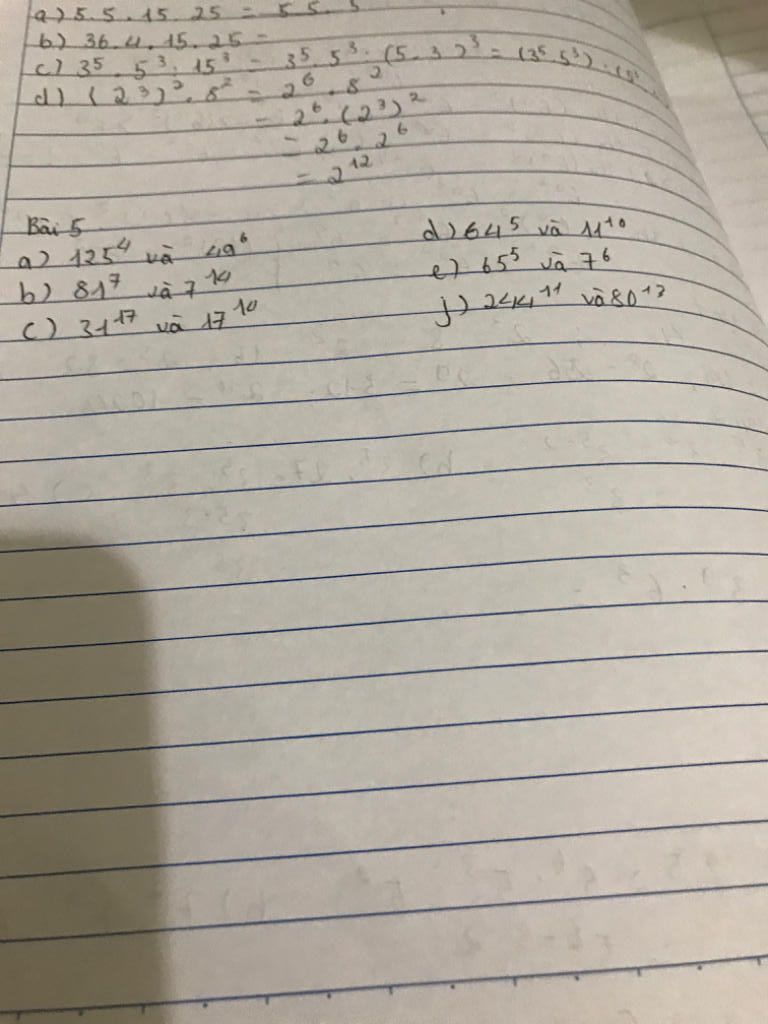 a) 5.5.15.25 = 5.5.5
b) 36.4.15.25 =
c) 3⁵.5³:15³ = 3⁵.5³.(5.3)³ = (3⁵.5³).
d) (2³)².8² = 2⁶.8²
= 2⁶.(2³)²
= 2⁶.2⁶
= 2¹²
Bài 5
a) 125⁴ và 49⁶
b) 81⁷ và 7¹⁴
c) 31¹⁷ và 17¹⁰
d) 64⁵ và 11¹⁰
e) 65⁵ và 7⁶
j) 244¹¹ và 80¹³